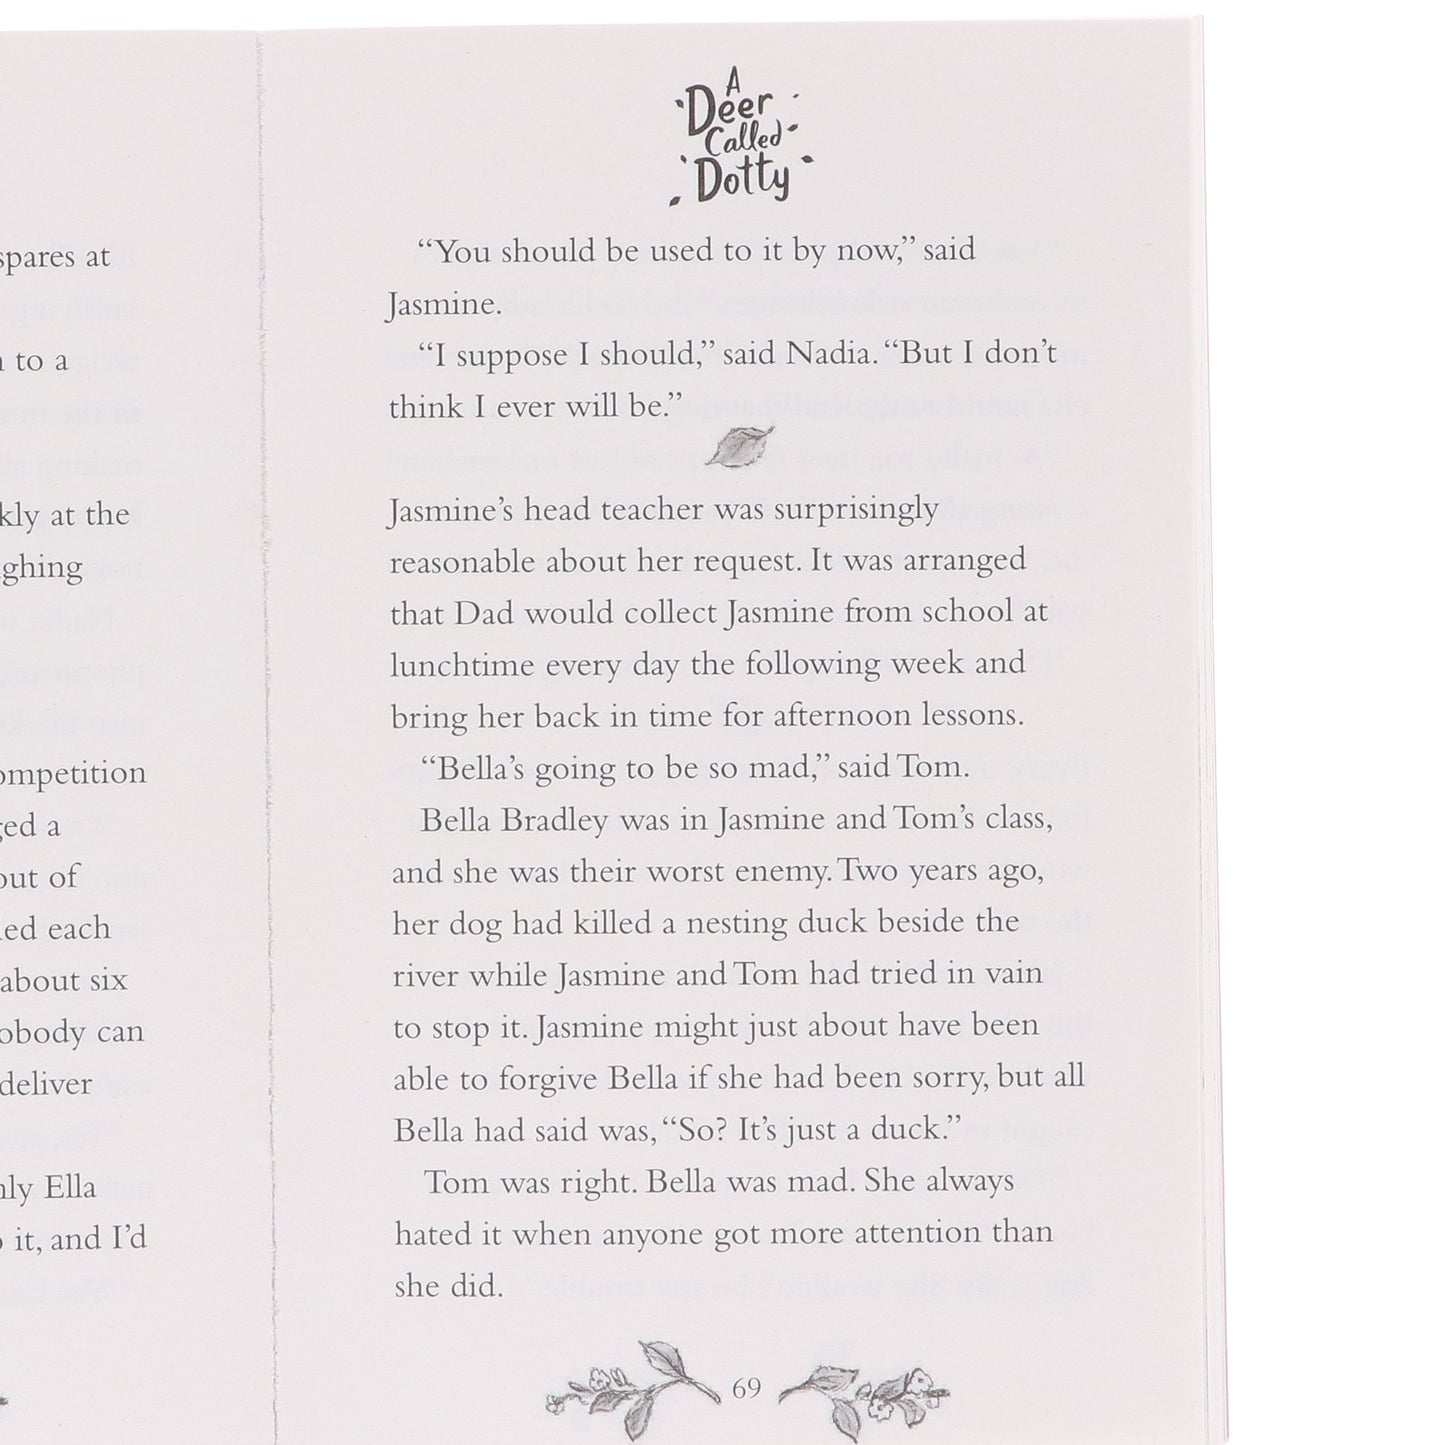 spares at
to a
at the
competition
a
out of
each
about six
nobody can
deliver
Ella
it, and I'd
A
Deer
Called
Dotty
“You should be used to it by now,” said
Jasmine.
“I suppose I should,” said Nadia. “But I don't
think I ever will be.”
Jasmine's head teacher was surprisingly
reasonable about her request. It was arranged
that Dad would collect Jasmine from school at
lunchtime every day the following week and
bring her back in time for afternoon lessons.
“Bella's going to be so mad,” said Tom.
Bella Bradley was in Jasmine and Tom's class,
and she was their worst enemy. Two years ago,
her dog had killed a nesting duck beside the
river while Jasmine and Tom had tried in vain
to stop it. Jasmine might just about have been
able to forgive Bella if she had been sorry, but all
Bella had said was, “So? It's just a duck.”
Tom was right. Bella was mad. She always
hated it when anyone got more attention than
she did.
69